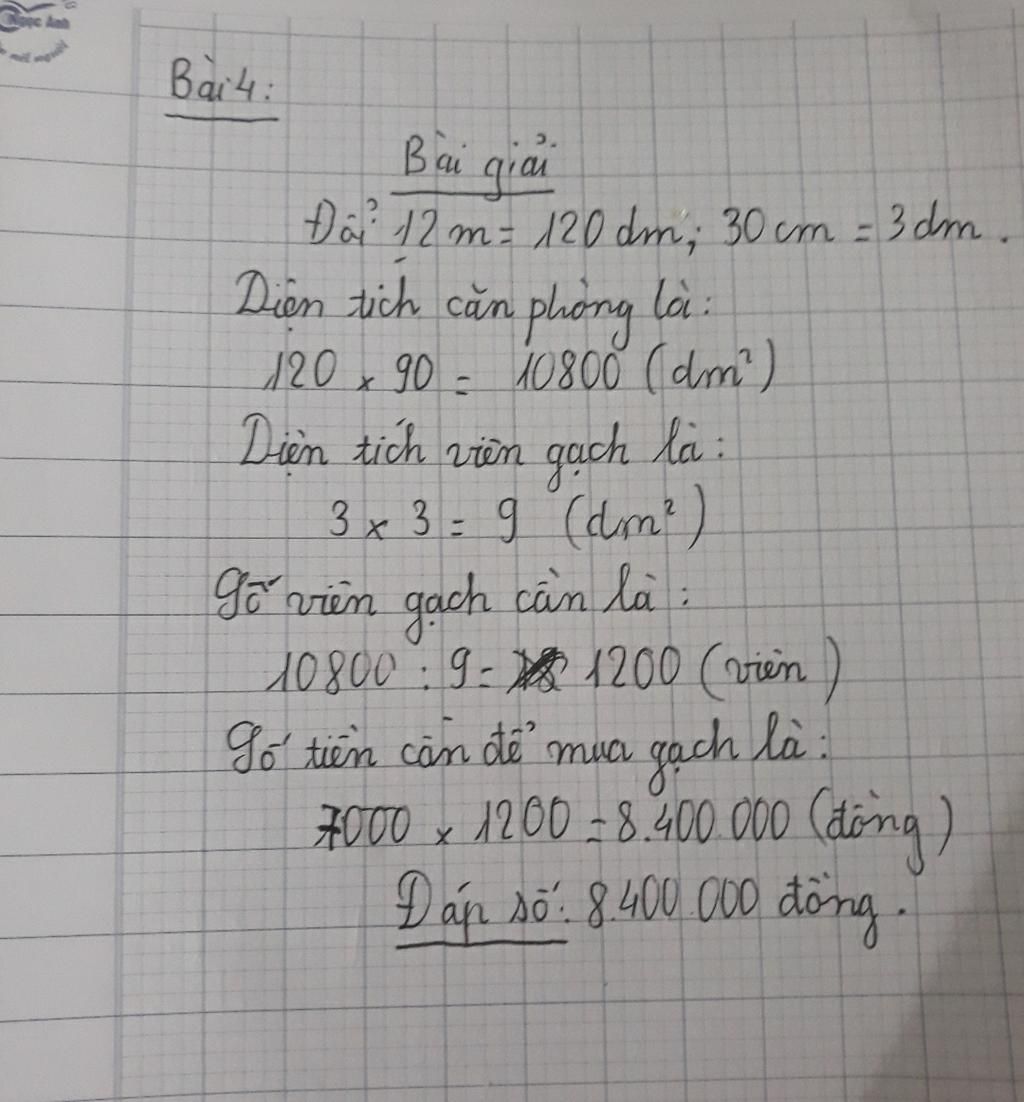 Ngọc Ánh
Bài 4:
Bài giải
Đổi: 12 m = 120 dm; 30 cm = 3 dm.
Diện tích căn phòng là:
120 x 90 = 10800 (dm²)
Diện tích viên gạch là:
3 x 3 = 9 (dm²)
Số viên gạch cần là:
10800 : 9 = 1200 (viên)
Số tiền cần để mua gạch là:
7000 x 1200 = 8.400.000 (đồng)
Đáp số: 8.400.000 đồng.